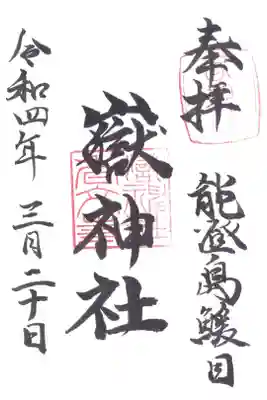 奉拝
能登島鰀目
嶽神社
令和四年 三月二十日